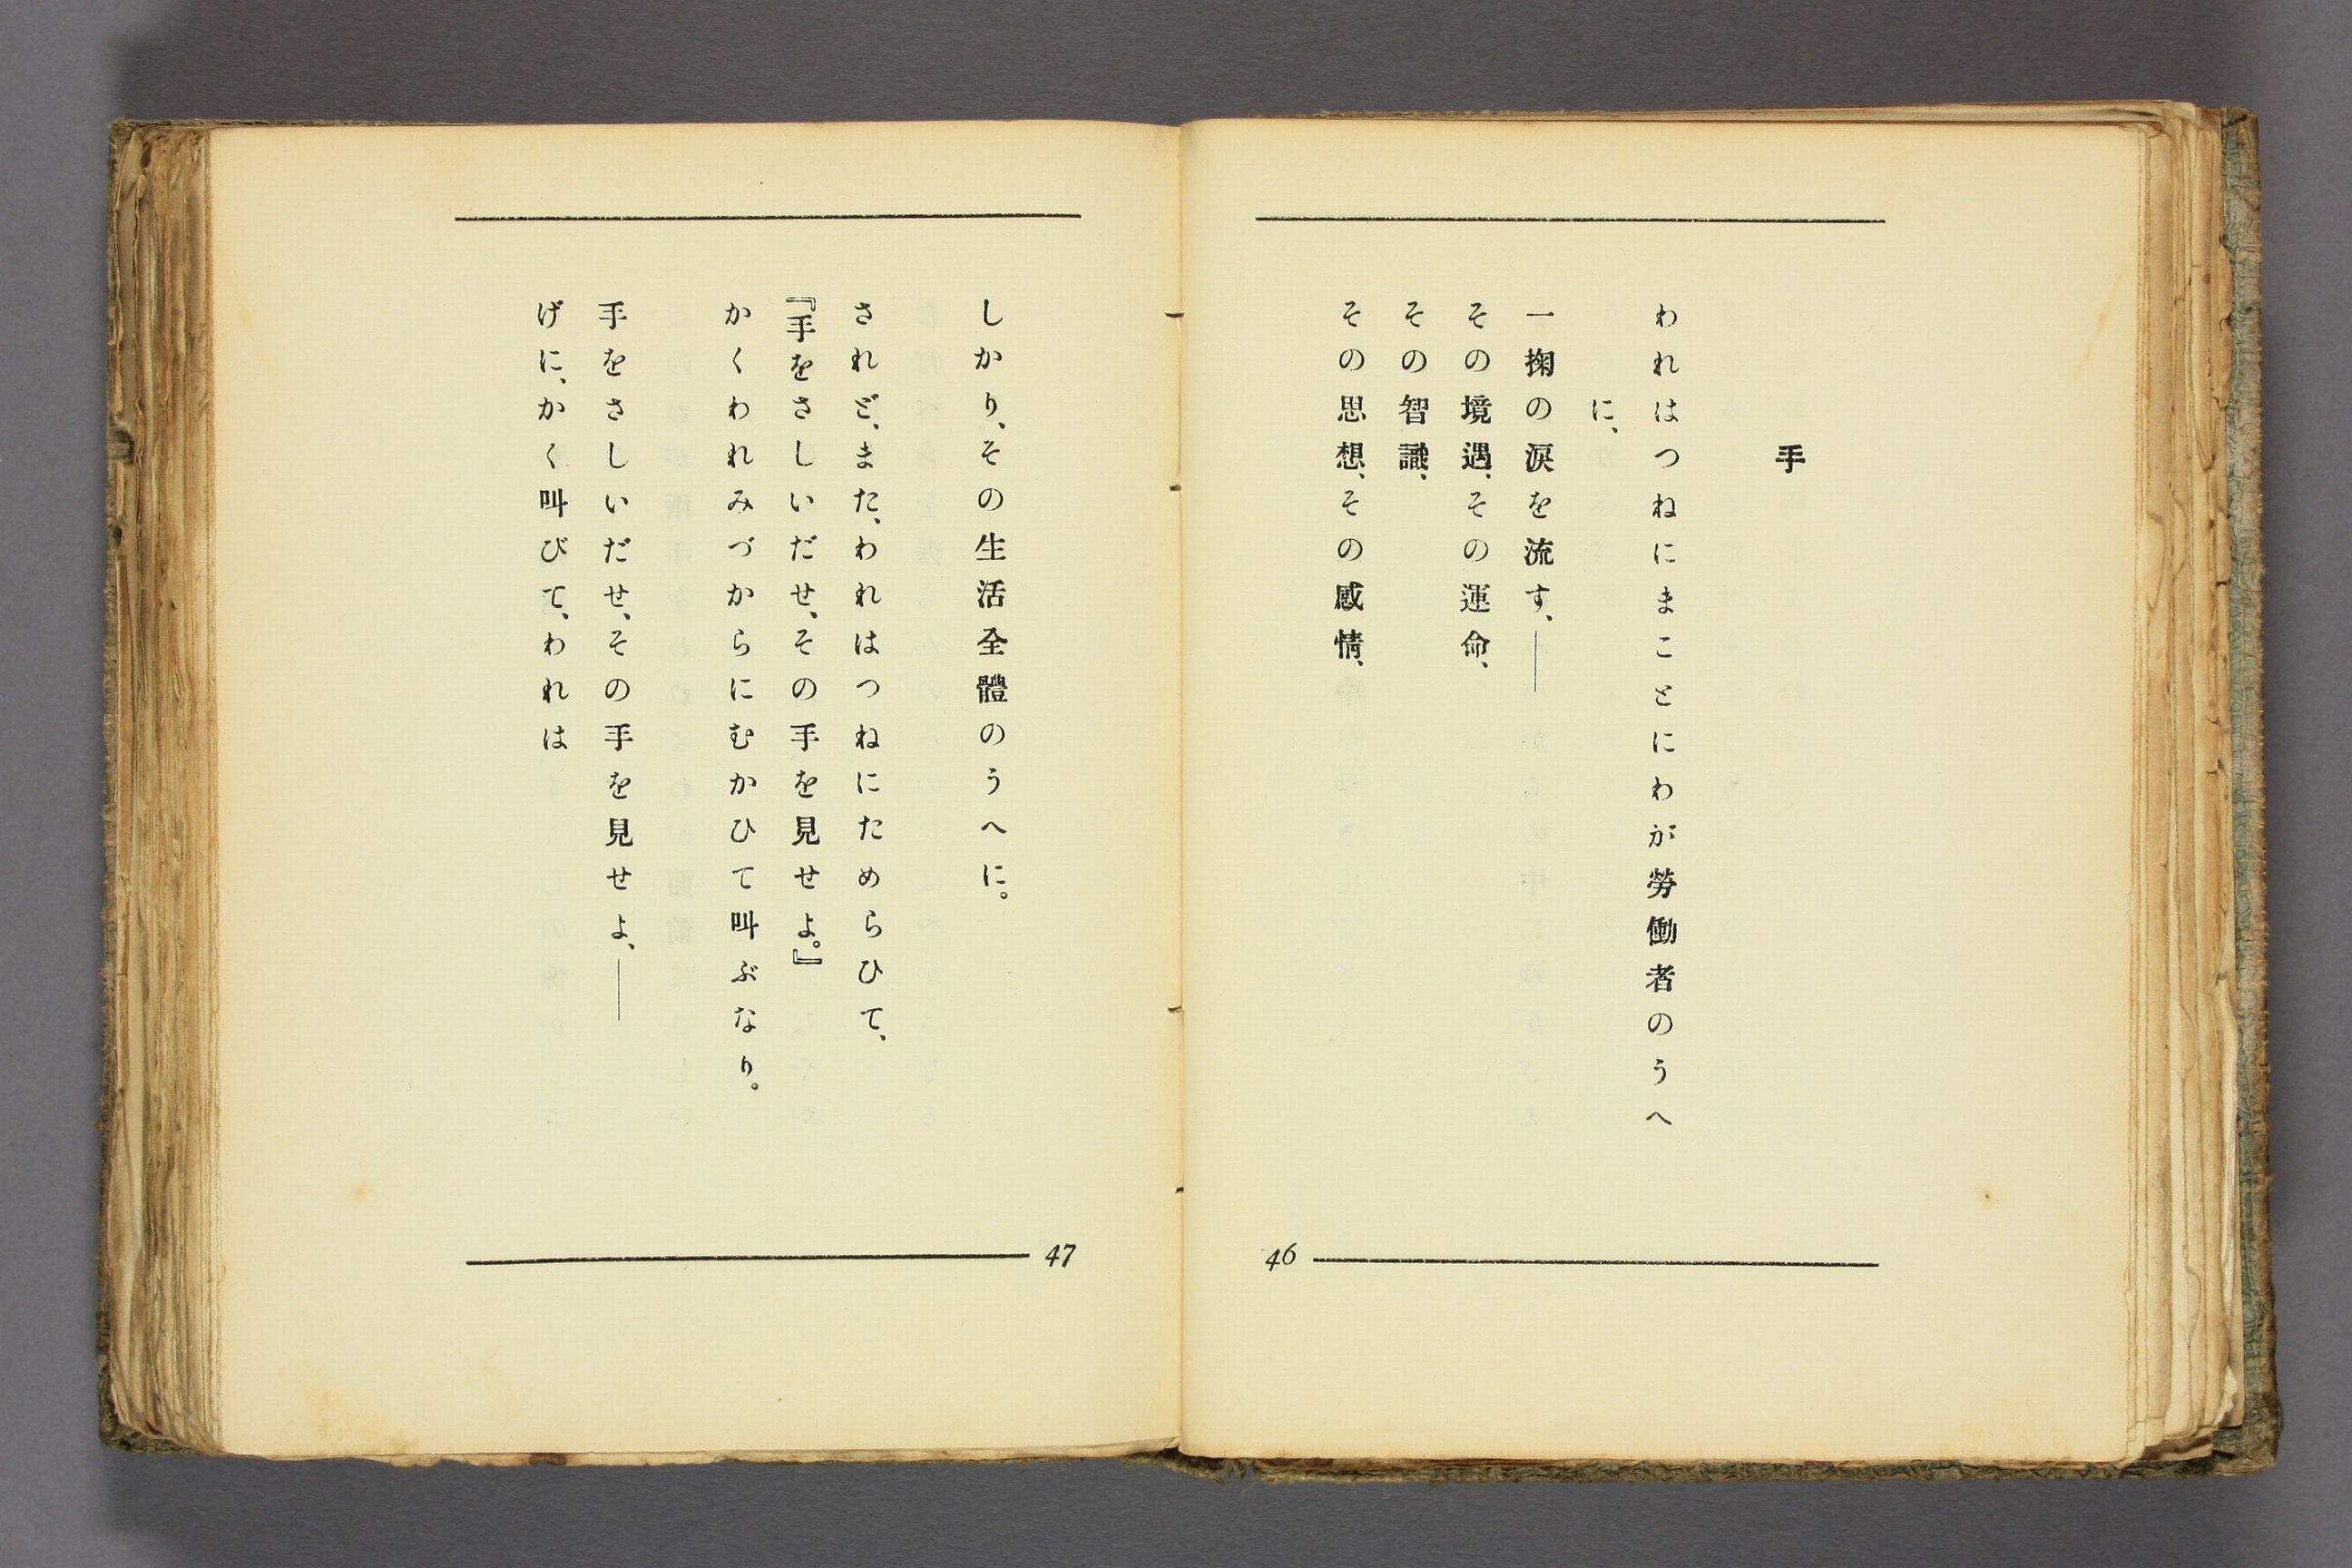 手
われはつねにまことにわが勞働者のうへ
に、
一掬の涙を流す、――
その境遇、その運命、
その智識、
その思想、その感情、
46
しかり、その生活全體のうへに。
されど、また、われはつねにためらひて、
『手をさしいだせ、その手を見せよ。』
かくわれみづからにむかひて叫ぶなり。
手をさしいだせ、その手を見せよ、――
げに、かく叫びて、われは
47